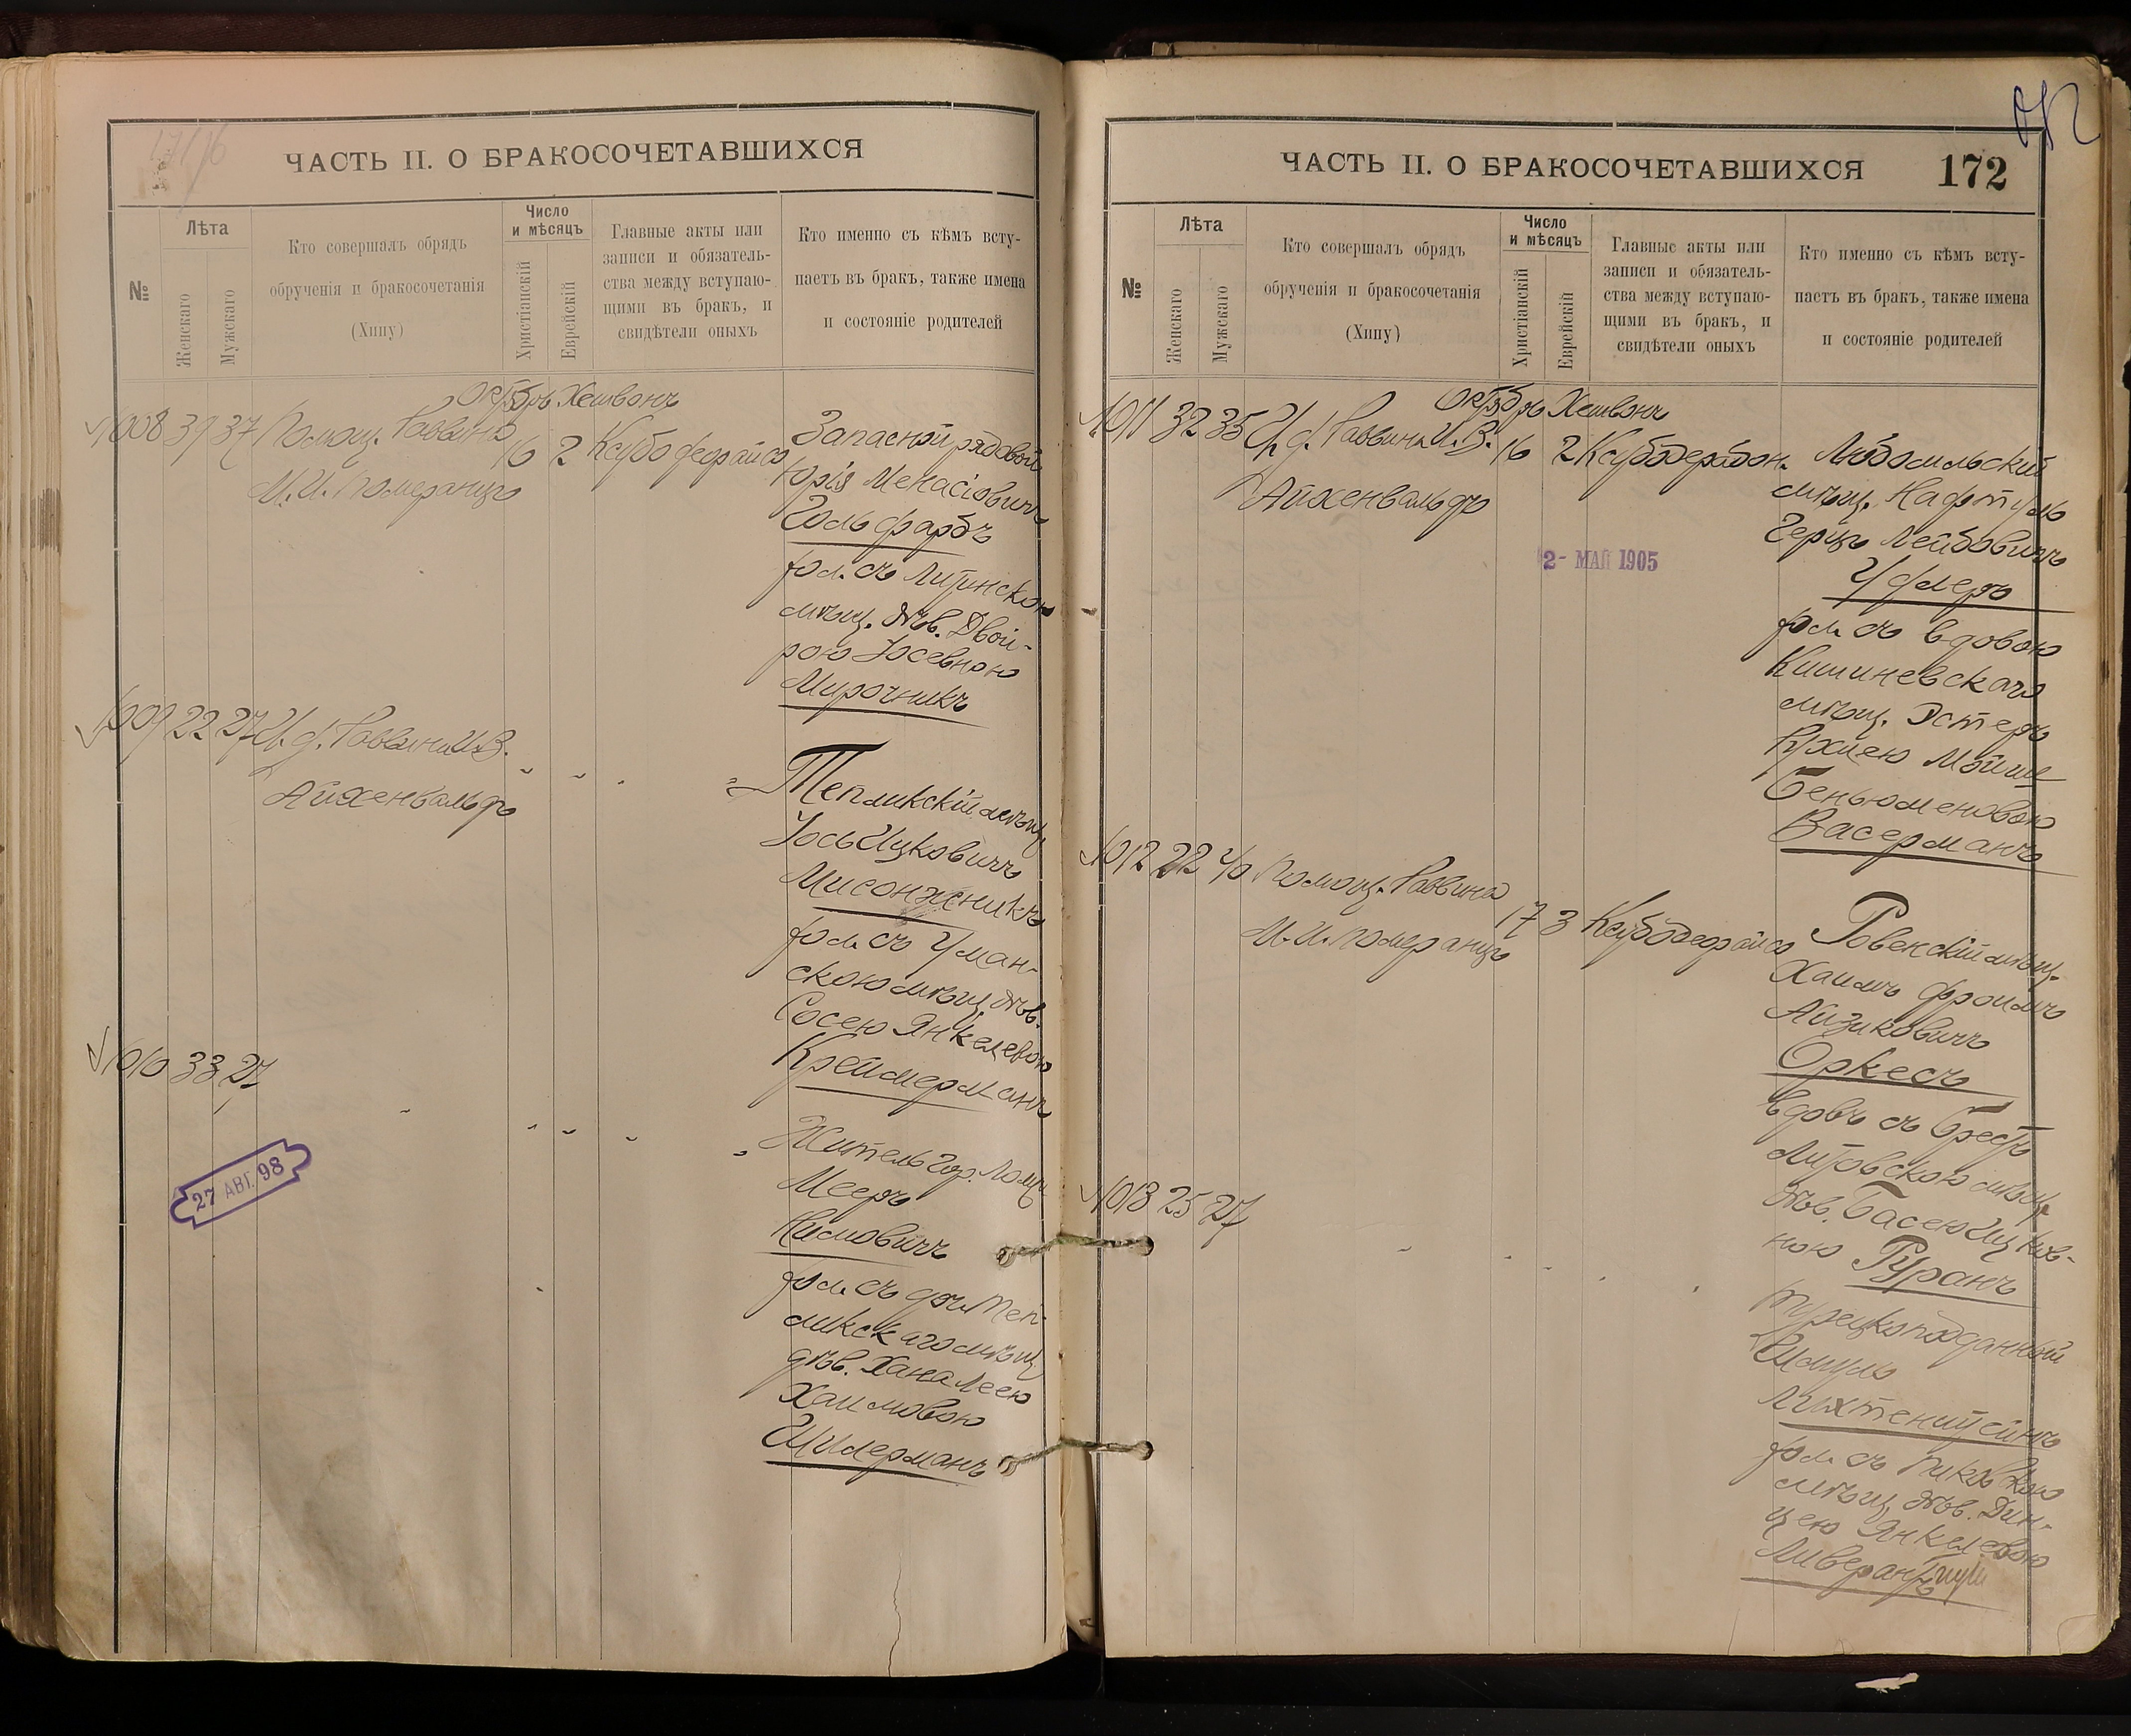 ЧАСТЬ II. О БРАКОСОЧЕТАВШИХСЯ
№
Лѣта
Женскаго
Мужскаго
Кто совершалъ обрядъ
обрученія и бракосочетанія
(Хипу)
Число
и мѣсяцъ
Христіанскій
Еврейскій
Главные акты или
записи и обязатель-
ства между вступаю-
щими въ бракъ, и
свидѣтели оныхъ
Кто именно съ кѣмъ всту-
паетъ въ бракъ, также имена
и состояніе родителей
Октбрь Хешвонъ
1008 39 37 Помощ. Раввина
М. И. Померанцъ
16 2
Запасной рядовой
Юрія Менасіовичъ
Гольфарбъ
хол. съ Литинскою
мѣщ. дѣв. Двой-
рою Іосевною
Мирочникъ
1009 22 27 И. д. Раввина И. В.
Айхенвальдъ
Тепликскій мѣщ.
Іось Ицковичъ
Мисонжникъ
хол. съ Уман-
скою мѣщ. дѣв.
Сосею Янкелевою
Креймерманъ
1010 33 27
27 АВГ. 98
Житель гор. Ломж.
Мееръ
Нимовичъ
хол. съ доч. Теп-
ликскаго мѣщ.
дѣв. Хана Леею
Хаимовою
Шилерманъ
ЧАСТЬ II. О БРАКОСОЧЕТАВШИХСЯ
172
№
Лѣта
Женскаго
Мужскаго
Кто совершалъ обрядъ
обрученія и бракосочетанія
(Хипу)
Число
и мѣсяцъ
Христіанскій
Еврейскій
Главные акты или
записи и обязатель-
ства между вступаю-
щими въ бракъ, и
свидѣтели оныхъ
Кто именно съ кѣмъ всту-
паетъ въ бракъ, также имена
и состояніе родителей
Октбрь Хешвонъ
1011 32 35 И. д. Раввина И. В.
Айхенвальдъ
16 2
2- МАЙ 1905
Любомльскій
мѣщ. Нафтуль
Герцъ Лейбовичъ
хол. съ вдовою
Кишиневскаго
мѣщ. Эстеръ
Рухлею Мойше
Беньюменовою
Васерманъ
1012 22 40 Помощ. Раввина
М. И. Померанцъ
17 3
Ровенскій мѣщ.
Хаимъ Фроимъ
Айзиковичъ
Оркесъ
вдовъ съ Брестъ
Литовскою мѣщ.
дѣв. Басею Ицков-
ною Гуранъ
1013 25 27
Турецкоподданный
Шмуль
Лихтенштейнъ
хол. съ Пиковскою
мѣщ. дѣв. Дин-
цею Янкелевою
Ливерантъ